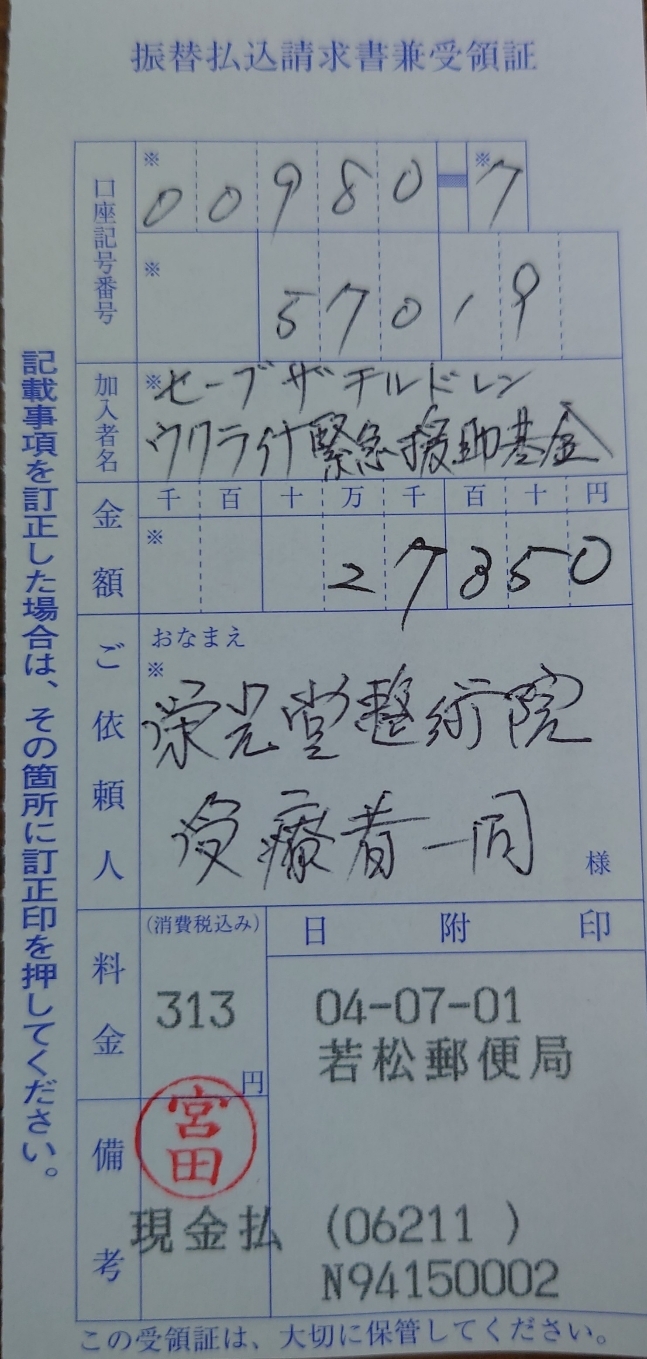 振替払込請求書兼受領証
口座記号番号
※ ※
00980-7
※
57019
加入者名
※セーブザチルドレン
ウクライナ緊急援助基金
金額
千百十万千百十円
※
27350
ご依頼人
おなまえ
※
栄光堂整術院
受療者一同
様
料金
(消費税込み)
313
円
日附印
04-07-01
若松郵便局
備考
宮田
現金払 (06211 )
N94150002
この受領証は、大切に保管してください。
記載事項を訂正した場合は、その箇所に訂正印を押してください。